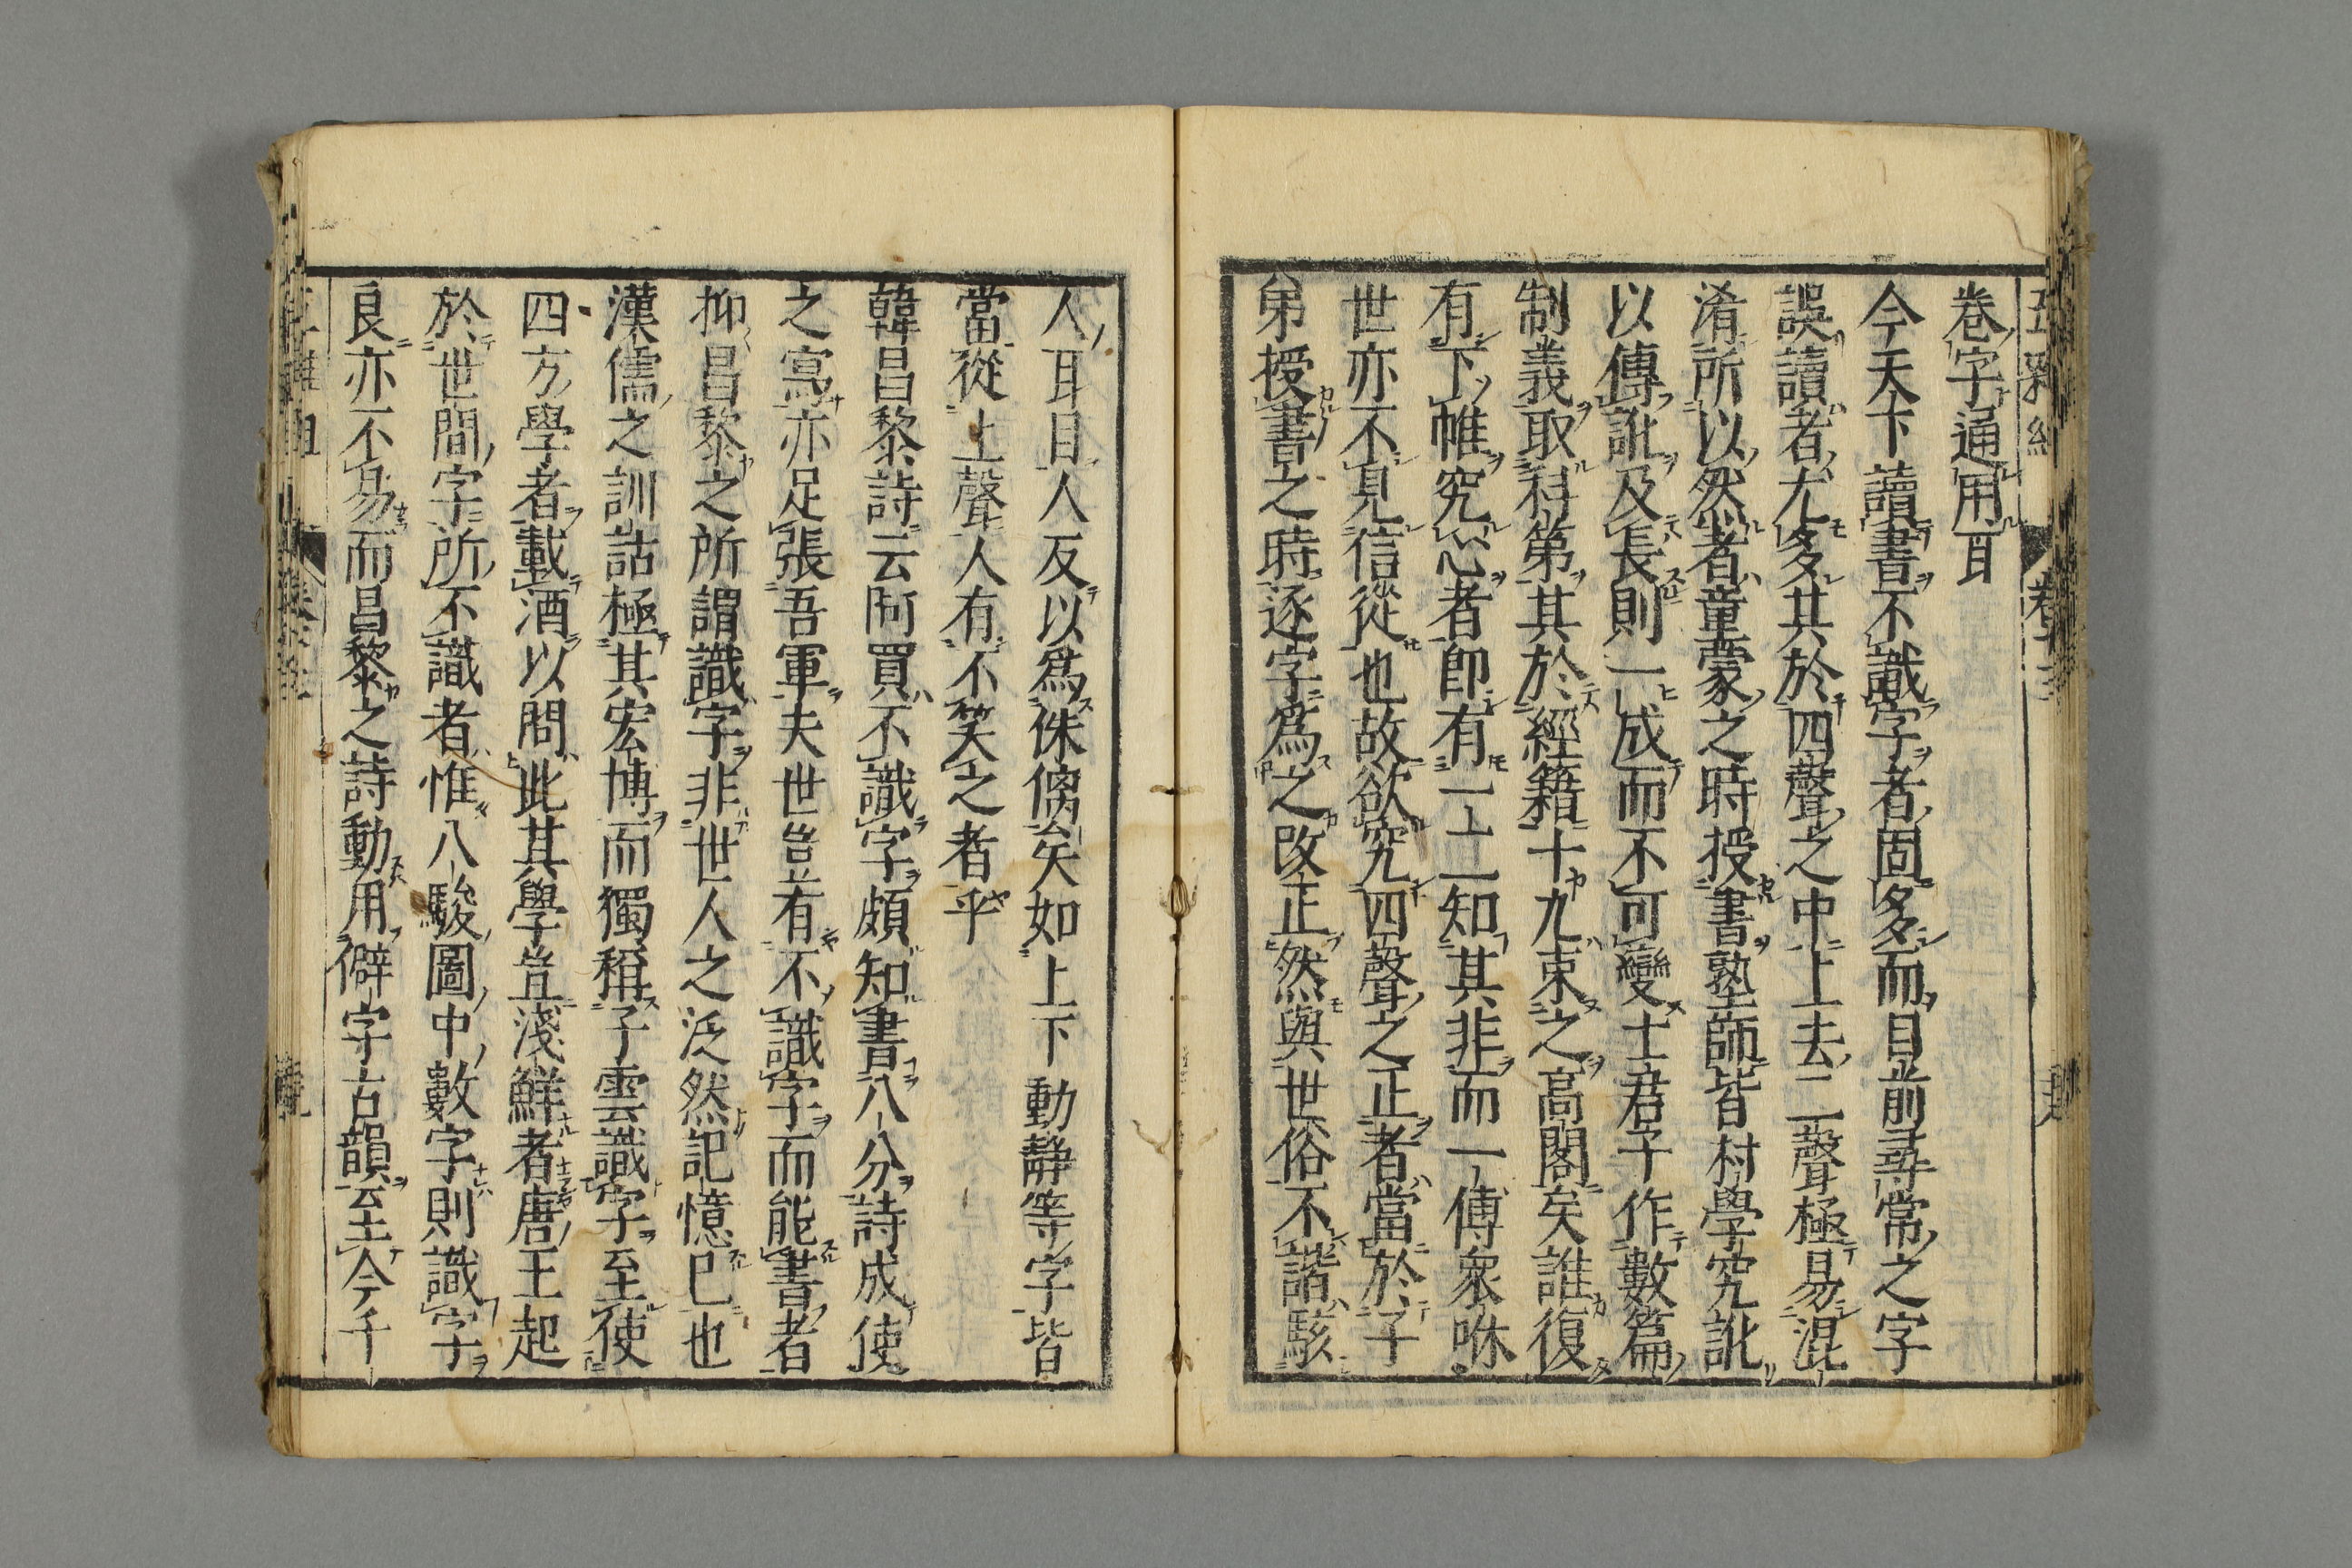 卷字通用耳
今天下讀書不識字者固多而目前尋常之字
誤讀者尤多其於四聲之中上去二聲極易混
淆所以然者童蒙之時授書塾師皆村學究訛
以傳訛及長則一成而不可變士君子作數篇
制義取科第其於經籍十九束之高閣矣誰復
有下帷究心者即有一二知其非而一傳衆咻
世亦不見信從也故欲究四聲之正者當於子
弟授書之時逐字爲之改正然與世俗不諧駭
人耳目人反以爲侏𠌯矣如上下動静等字皆
當從上聲人有不笑之者乎
韓昌黎詩云阿買不識字頗知書八分詩成使
之寫亦足張吾軍夫世豈有不識字而能書者
抑昌黎之所謂識字非世人之泛然記憶已也
漢儒之訓詁極其宏博而獨稱子雲識字至使
四方學者載酒以問此其學豈淺鮮者唐王起
於世間字所不識者惟八駿圖中數字則識字
良亦不易而昌黎之詩動用僻字古韻至今千